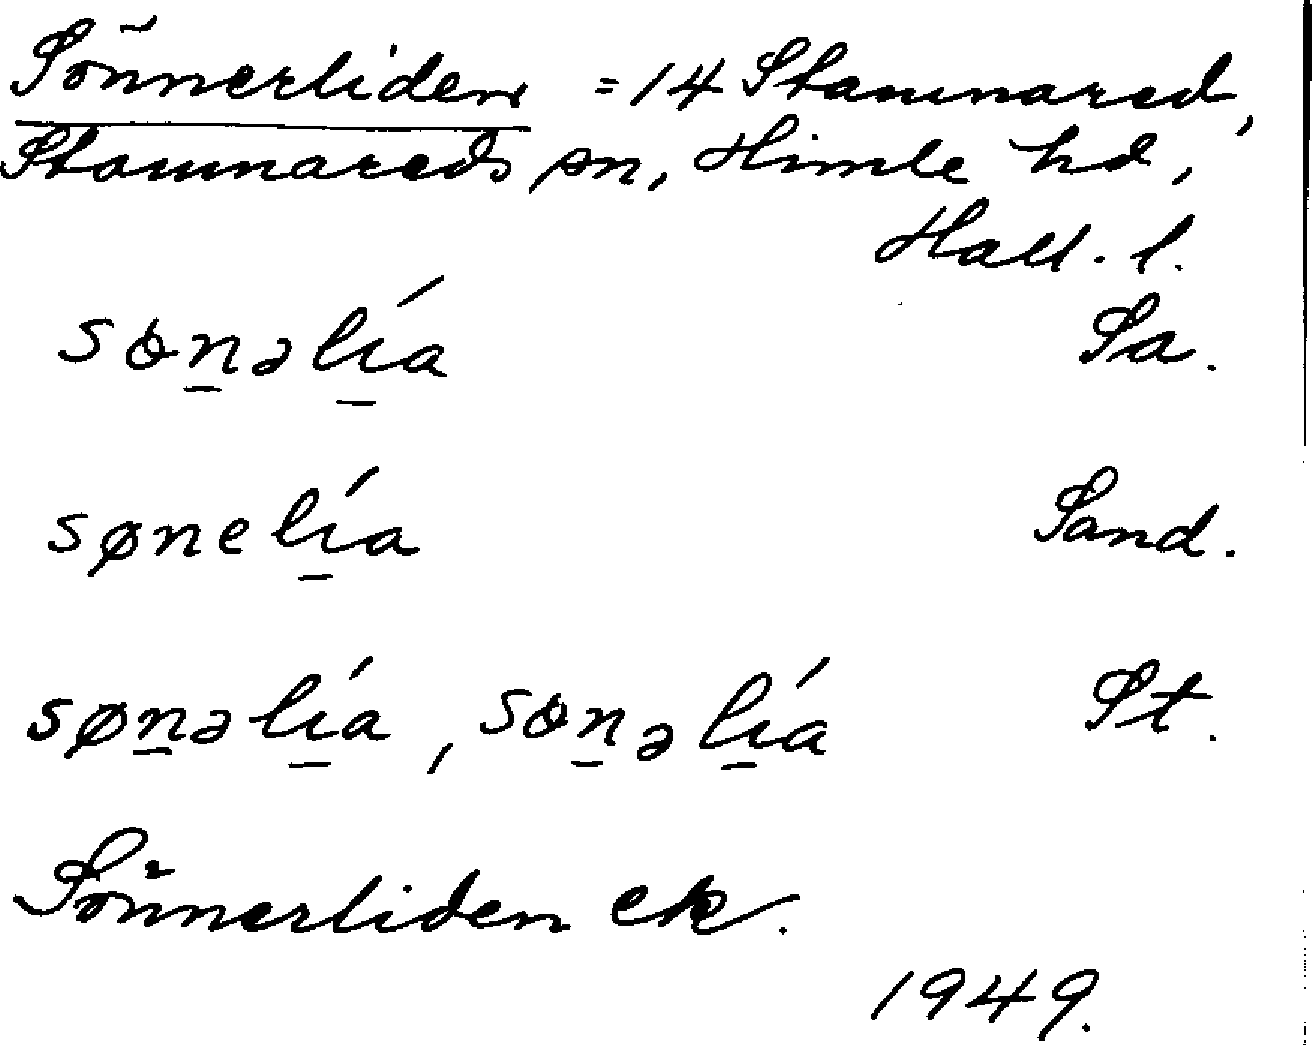 Sönnerliden = 14 Stamnared,
Stamnareds sn, Himle hd,
Hall. l.
sɵn̲əlı̲́a Sa.
sønelı̲́a Sand.
søn̲əlı̲́a, sɵn̲əlı̲́a St.
Sönnerliden ek.
1949.